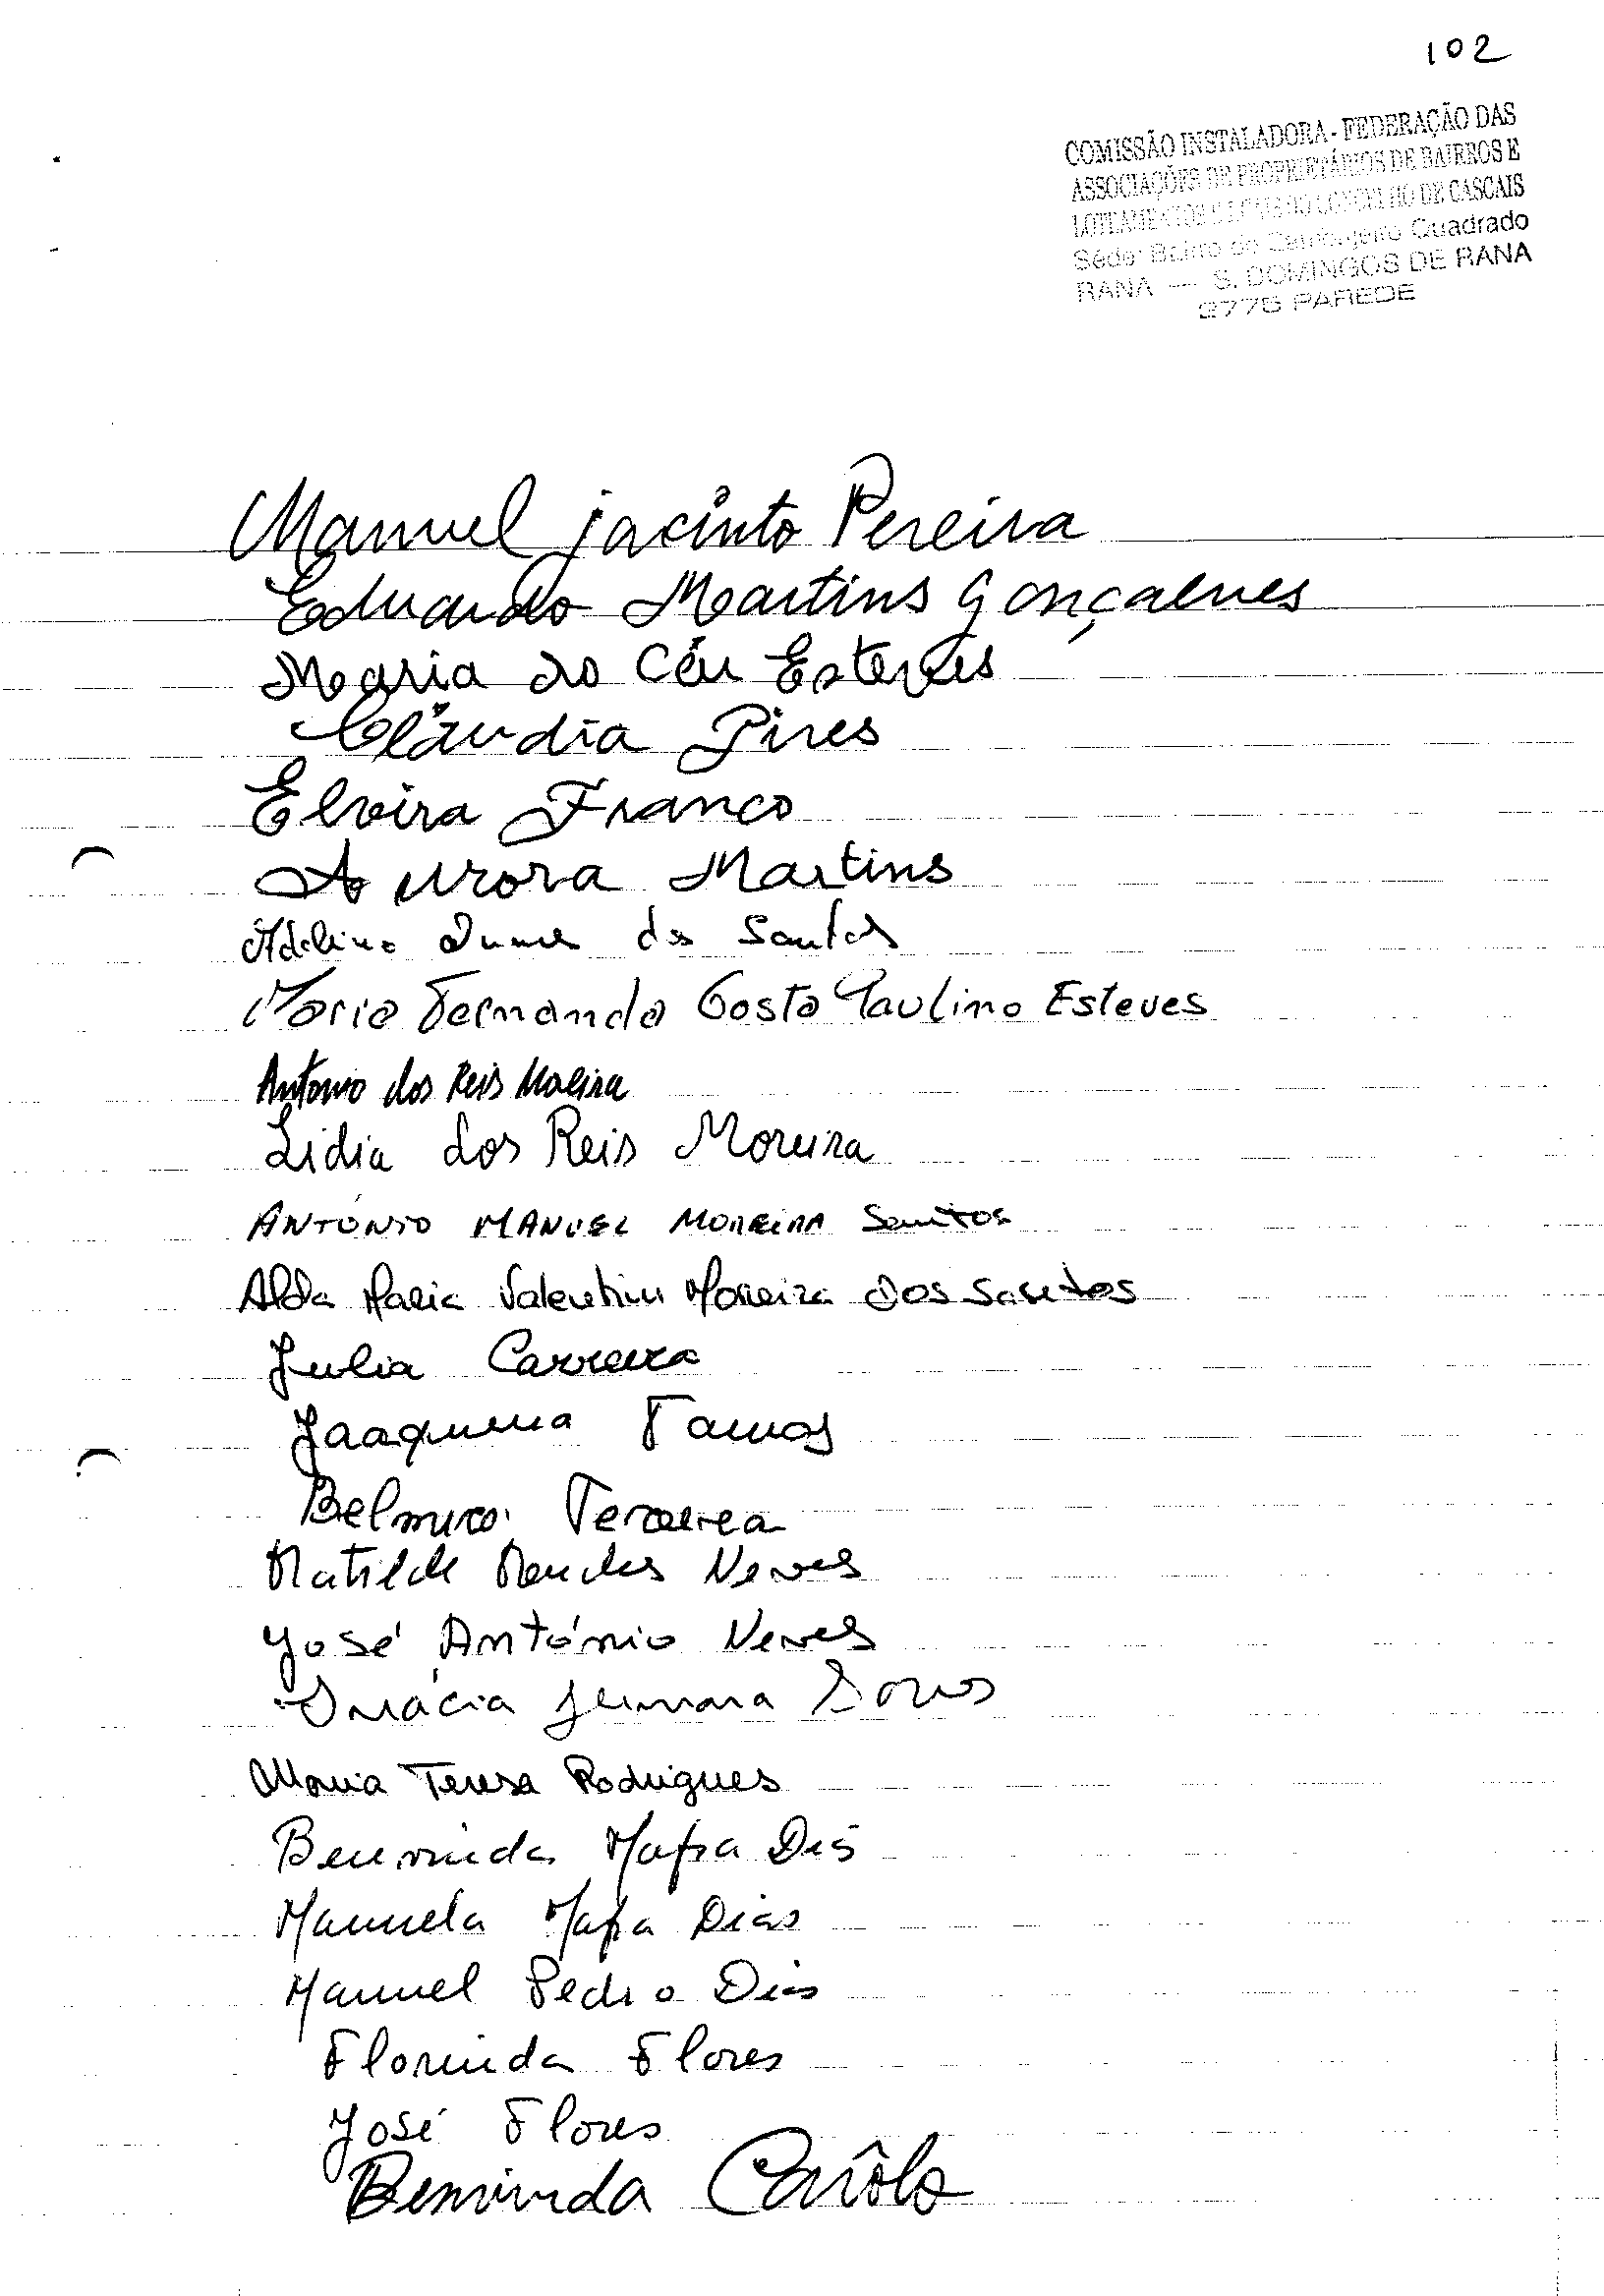 102
COMISSÃO INSTALADORA - FEDERAÇÃO DAS
ASSOCIAÇÕES DE PROPRIETÁRIOS DE BAIRROS E
CONCELHO DE CASCAIS
Sede: Bairro do Quadrado
RANA — S. DOMINGOS DE RANA
2775 PAREDE
Manuel jacinto Pereira
Eduardo Martins Gonçalves
Maria do Céu Esteves
Cláudia Pires
Elvira Franco
Aurora Martins
Adelino dos Santos
Maria Fernanda Costa Paulino Esteves
Antonio dos Reis Moreira
Lidia dos Reis Moreira
ANTÓNIO MANUEL MOREIRA Santos
Alda Maria Valentim Moreira dos Santos
Julia Carreira
Jaaquina
Belmiro
Matilde Mendes Neves
José António Neves
Inácia
Maria Teresa Rodrigues
Benvinda Mafra Dias
Manuela Mafra Dias
Manuel Pedro Dias
Florinda Flores
José Flores
Benvinda